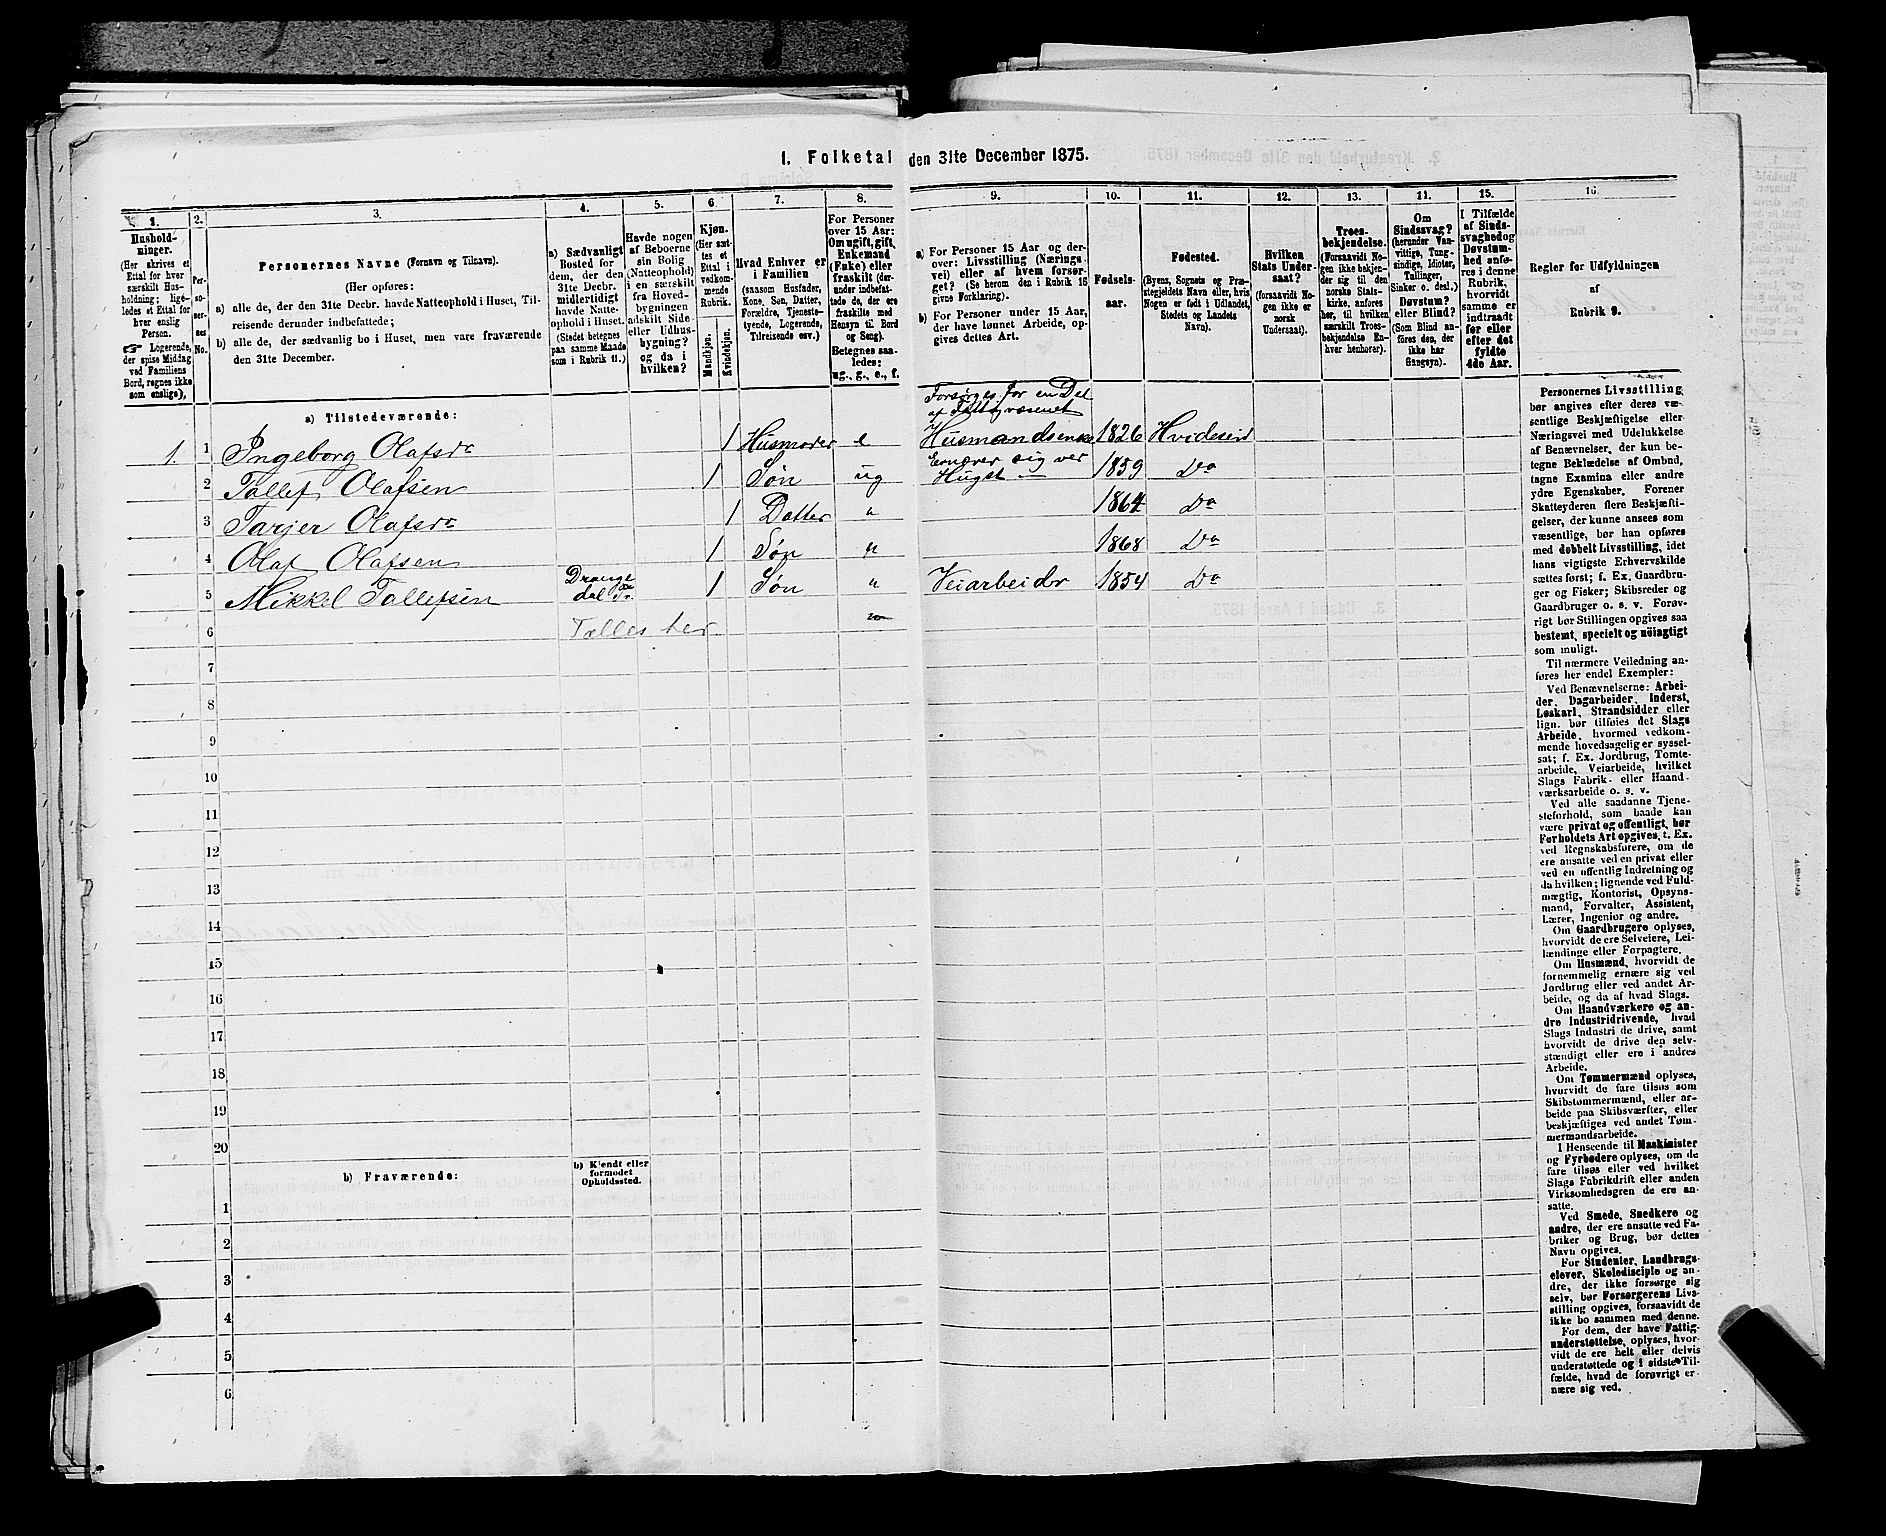 1. Folketal den 31te December 1875.
1.
Hushold-
ninger.
(Her skrives et
Ettal for hver
særskilt Hus-
holdning; lige-
ledes et Ettal for
hver enslig
Person.
☞ Logerende,
der spise Middag
ved Familiens
Bord, regnes ikke
som enslige),
2.
Per-
so-
ner-
nes
No.
3.
Personernes Navne (Fornavn og Tilnavn).
(Her opføres:
a) alle de, der den 31te Decbr. havde Natteophold i Huset, Til-
reisende derunder indbefattede;
b) alle de, der sædvanlig bo i Huset, men vare fraværende
den 31te December.
4.
a) Sædvanligt
Bosted for
dem, der den
31te Decbr.
midlertidigt
havde Natte-
ophold i Huset.
(Stedet betegnes
paa samme Maade
som i Rubrik 11.)
5.
Havde nogen
af Beboerne
sin Bolig
(Natteophold)
i en særskilt
fra Hoved-
bygningen
adskilt Side-
eller Udhus-
bygning?
og da i
hvilken?
6.
Kjøn.
(Her sæt-
tes et
Ettal i
vedkom-
mende
Rubrik.
Mandkjøn.
Kvindekjøn.
7.
Hvad Enhver er
i Familien
(saasom Husfader,
Kone, Søn, Datter,
Forældre, Tjeneste-
tyende, Logerende,
Tilreisende osv.)
8.
For Personer
over 15 Aar:
Om ugift, gift,
Enkemand
(Enke) eller
fraskilt (der-
under indbefat-
tede de, der ere
fraskilte med
Hensyn til Bord
og Seng).
Betegnes saa-
ledes:
ug., g., e., f.
9.
a) For Personer 15 Aar og der-
over: Livsstilling (Nærings-
vei) eller af hvem forsør-
get? (Se herom den i Rubrik 16
givne Forklaring).
b) For Personer under 15 Aar,
der have lønnet Arbeide, op-
gives dettes Art.
10.
Fødsels-
aar.
11.
Fødested.
(Byens, Sognets og Præ-
stegjeldets Navn eller, hvis
Nogen er født i Udlandet,
Stedets og Landets
Navn).
12.
Hvilken
Stats Under-
saat?
(forsaavidt No-
gen ikke er
norsk
Undersaat).
13.
Troes-
bekjendelse.
(Forsaavidt No-
gen ikke bekjen-
der sig til den
norske Stats-
kirke, anføres
her, til hvilken
særskilt Troes-
bekjendelse En-
hver henhører).
14.
Om
Sindssvag?
(herunder Van-
vittige, Tung-
sindige, Idioter,
Tullinger,
Sinker o. desl.)
Døvstum?
eller Blind?
(Som Blind an-
føres den, der
ikke har
Gangsyn).
15.
I Tilfælde
af Sinds-
svaghed og
Døvstum-
hed anfø-
res i denne
Rubrik,
hvorvidt
samme er
indtraadt
før eller
efter det
fyldte
4de Aar.
16.
Regler for Udfyldningen
af
Rubrik 9.
a) Tilstedeværende:
Forsørges for en Del
af Fattigvæsenet
1. 1 Ingeborg Olafsdr 1 Husmoder e Husmandsenke 1826 Hvideseid
Ernærer sig ved
2 Tollef Olafsen 1 Søn ug Hugst 1859 Do
3 Tarjer Olafsdr 1 Datter " 1864 Do
4 Olaf Olafsen 1 Søn " 1868 Do
Drange
5 Mikkel Tollefsen dal Pr. 1 Søn " Veiarbeider 1854 Do
6 Tælles her
7
8
9
10
11
12
13
14
15
16
17
18
19
20
b) Fraværende:
b) Kjendt eller
formodet
Opholdssted.
1
2
3
4
5
6
Personernes Livsstilling
bør angives efter deres væ-
sentlige Beskjæftigelse eller
Næringsvei med Udelukkelse
af Benævnelser, der kun be-
tegne Beklædelse af Ombud,
tagne Examina eller andre
ydre Egenskaber. Forener
Skatteyderen flere Beskjæfti-
gelser, der kunne ansees som
væsentlige, bør han opføres
med dobbelt Livsstilling, idet
hans vigtigste Erhvervskilde
sættes først; f. Ex. Gaardbru-
ger og Fisker; Skibsreder og
Gaardbruger o. s. v. Forøv-
rigt bør Stillingen opgives saa
bestemt, specielt og nöiagtigt
som muligt.
Til nærmere Veiledning an-
føres her endel Exempler:
Ved Benævnelserne: Arbei-
der, Dagarbeider, Inderst,
Løskarl, Strandsidder eller
lign. bør tilføies det Slags
Arbeide, hvormed vedkom-
mende hovedsagelig er syssel-
sat; f. Ex. Jordbrug, Tomte-
arbeide, Veiarbeide, hvilket
Slags Fabrik- eller Haand-
værksarbeide o. s. v.
Ved alle saadanne Tjene-
steforhold, som baade kan
være privat og offentligt, bør
Forholdets Art opgives, t. Ex.
ved Regnskabsførere, om de
ere ansatte ved en privat eller
ved en offentlig Indretning og
da hvilken; lignende ved Fuld-
mægtig, Kontorist, Opsyns-
mand, Forvalter, Assistent,
Lærer, Ingeniør og andre.
Om Gaardbrugere oplyses,
hvorvidt de ere Selveiere, Lei-
lændinge eller Forpagtere.
Om Husmænd, hvorvidt de
fornemmelig ernære sig ved
Jordbrug eller ved andet Ar-
beide, og da af hvad Slags.
Om Haandværkere og an-
dre Industridrivende, hvad
Slags Industri de drive, samt
hvorvidt de drive den selv-
stændigt eller ere i andres
Arbeide.
Om Tømmermænd oplyses,
hvorvidt de fare tilsøs som
Skibstømmermænd, eller ar-
beide paa Skibsværfter, eller
beskjæftiges ved andet Tøm-
mermandsarbeide.
I Henseende til Maskinister
og Fyrbødere oplyses, om de
fare tilsøs eller ved hvilket
Slags Fabrikdrift eller anden
Virksomhedsgren de ere an-
satte.
Ved Smede, Snedkere og
andre, der ere ansatte ved Fa-
briker og Brug, bør dettes
Navn opgives.
For Studenter, Landbrugs-
elever, Skoledisciple og an-
dre, der ikke forsørge sig
selv, bør Forsørgerens Livs-
stilling opgives, forsaavidt de
ikke bo sammen med denne.
For dem, der have Fattig-
understøttelse, oplyses, hvor-
vidt de ere helt eller delvis
understøttede og i sidste Til-
fælde, hvad de forøvrigt er-
nære sig ved.